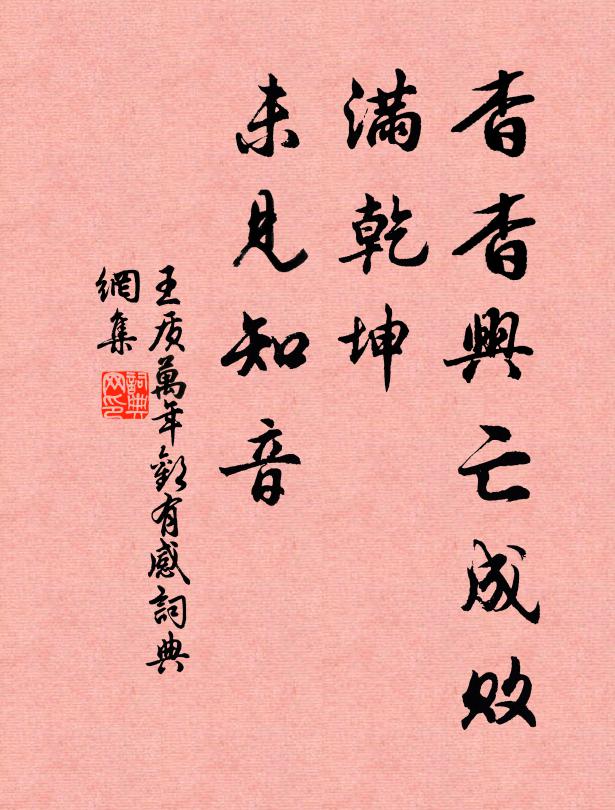 杳杳興亡成敗
滿乾坤
未見知音
王质萬年歡有感詞典
網集
詞典
网印